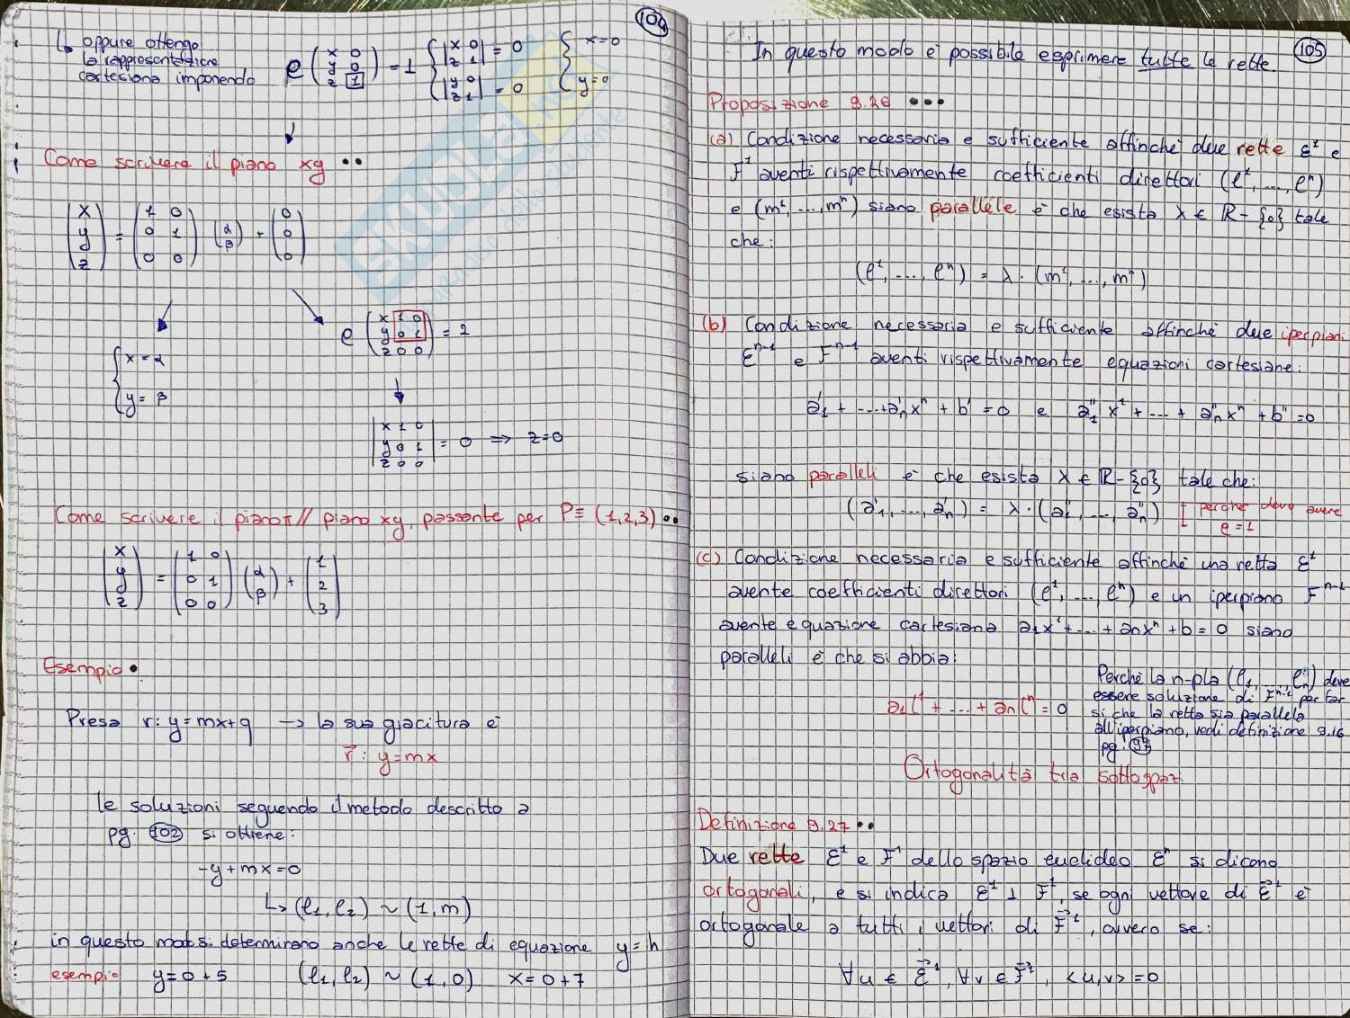 104
↳ oppure ottengo
la rappresentazione
cartesiana imponendo
ρ (x 0
y 0
z 1) = 1
{ |x 0
z 1| = 0
|y 0
z 1| = 0
{ x=0
y=0
Come scrivere il piano xy ••
(x
y
z) = (1 0
0 1
0 0) (α
β) + (0
0
0)
{ x=α
y=β
ρ (x 1 0
y 0 1
z 0 0) = 2
|x 1 0
y 0 1
z 0 0| = 0 => z=0
Come scrivere il piano π // piano xy, passante per P≡(1,2,3) ••
(x
y
z) = (1 0
0 1
0 0) (α
β) + (1
2
3)
Esempio •
Presa r: y=mx+q → la sua giacitura è
r⃗: y=mx
le soluzioni seguendo il metodo descritto a
pg. 102 si ottiene:
-y+mx=0
↳ (ℓ1,ℓ2) ~ (1,m)
in questo modo si determinano anche le rette di equazione y=h
esempio y=0+5 (ℓ1,ℓ2) ~ (1,0) x=0+7
105
In questo modo è possibile esprimere tutte le rette.
Proposizione 9.26 •••
(a) Condizione necessaria e sufficiente affinché due rette ℰ¹ e
F¹ aventi rispettivamente coefficienti direttori (ℓ¹,...,ℓⁿ)
e (m¹,...,mⁿ) siano parallele è che esista λ ∈ ℝ-{0} tale
che:
(ℓ¹,...,ℓⁿ) = λ·(m¹,...,mⁿ)
(b) Condizione necessaria e sufficiente affinché due iperpiani
ℰⁿ⁻¹ e Fⁿ⁻¹ aventi rispettivamente equazioni cartesiane:
a'₁+...+a'ₙxⁿ+b'=0 e a''₁x¹+...+a''ₙxⁿ+b''=0
siano paralleli è che esista λ ∈ ℝ-{0} tale che:
(a'₁,...,a'ₙ) = λ·(a''₁,...,a''ₙ) [perché deve avere
ρ=1
(c) Condizione necessaria e sufficiente affinché una retta ℰ¹
avente coefficienti direttori (ℓ¹,...,ℓⁿ) e un iperpiano Fⁿ⁻¹
avente equazione cartesiana a₁x¹+...+aₙxⁿ+b=0 siano
paralleli è che si abbia:
a₁ℓ¹+...+aₙℓⁿ=0
Perché la n-pla (ℓ₁,...,ℓₙ) deve
essere soluzione di Fⁿ⁻¹ per far
sì che la retta sia parallela
all'iperpiano, vedi definizione 9.16
pg.
Ortogonalità tra sottospazi
Definizione 9.27 ••
Due rette ℰ¹ e F¹ dello spazio euclideo ℰⁿ si dicono
ortogonali, e si indica ℰ¹ ⊥ F¹, se ogni vettore di ℰ⃗¹ è
ortogonale a tutti i vettori di F⃗¹, ovvero se:
∀u ∈ ℰ⃗¹, ∀v ∈ F⃗¹, <u,v>=0
SKUOLA.net